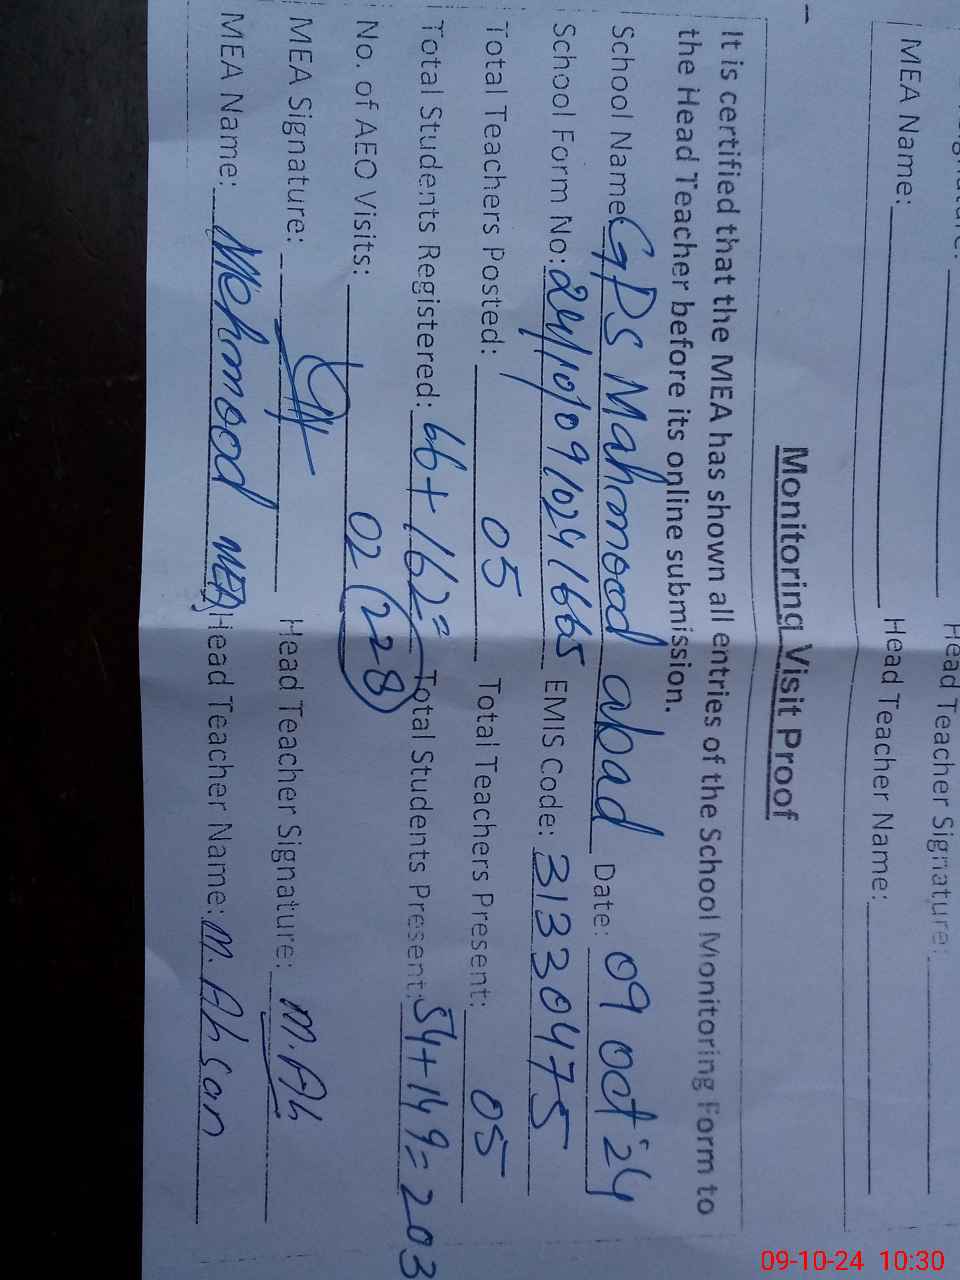 Signature: Head Teacher Signature:
MEA Name: Head Teacher Name:
Monitoring Visit Proof
It is certified that the MEA has shown all entries of the School Monitoring Form to
the Head Teacher before its online submission.
School Name: GPS Mahmood abad Date: 09 Oct '24
School Form No: EMIS Code: 31330475
Total Teachers Posted: 05 Total Teachers Present: 05
Total Students Registered: 66+162= Total Students Present: 54+149=203
No. of AEO Visits: 02 (228)
MEA Signature: Head Teacher Signature: M. Ah
MEA Name: Mehmood MEA Head Teacher Name: M. Ahsan
09-10-24 10:30